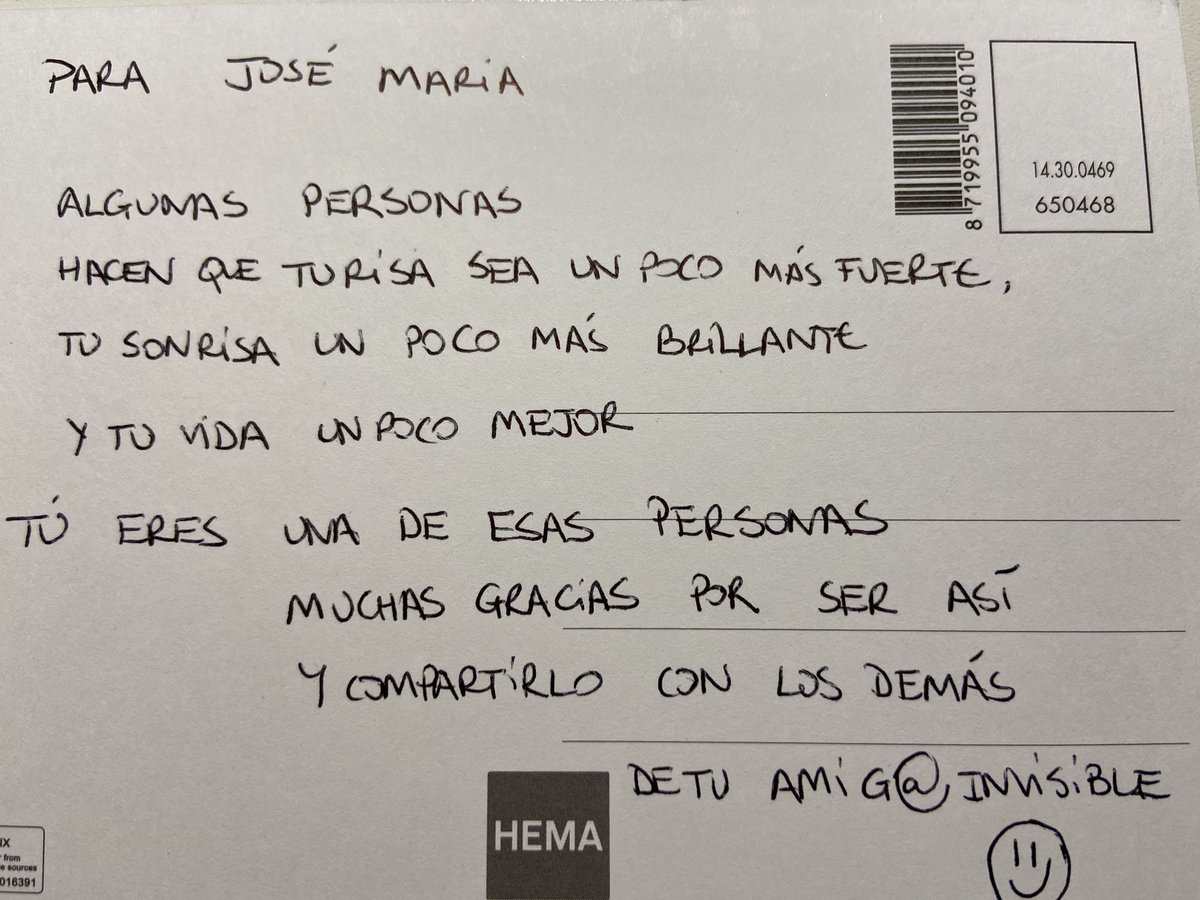 PARA JOSÉ MARIA
8 719955 094010
14.30.0469
650468
ALGUNAS PERSONAS
HACEN QUE TU RISA SEA UN POCO MÁS FUERTE,
TU SONRISA UN POCO MÁS BRILLANTE
Y TU VIDA UN POCO MEJOR
TÚ ERES UNA DE ESAS PERSONAS
MUCHAS GRACIAS POR SER ASÍ
Y COMPARTIRLO CON LOS DEMÁS
DE TU AMIG@ INVISIBLE
HEMA
IX
from
e sources
016391